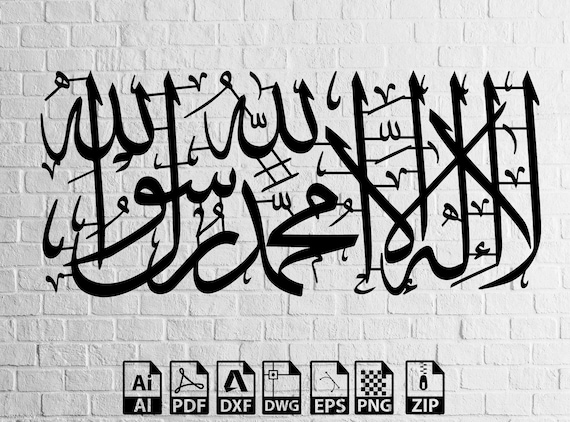 لا إله إلا الله محمد رسول الله
Ai PDF DXF DWG EPS PNG ZIP
AI